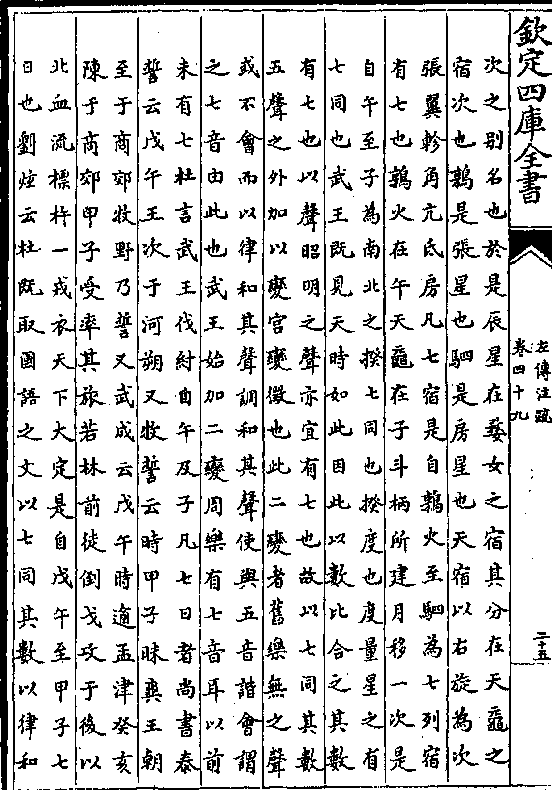 欽定四庫全書
左傳注疏
卷四十九
二十五
次之别名也於是辰星在婺女之宿其分在天黿之
宿次也鶉是張星也駟是房星也天宿以右旋為次
張翼軫角亢氐房凡七宿是自鶉火至駟為七列宿
有七也鶉火在午天黿在子斗柄所建月移一次是
自午至子為南北之揆七同也揆度也度量星之有
七同也武王既見天時如此因此以數比合之其數
有七也以聲昭明之聲亦宜有七也故以七同其數
五聲之外加以變宮變徵也此二變者舊樂無之聲
或不會而以律和其聲調和其聲使與五音諧會謂
之七音由此也武王始加二變周樂有七音耳以前
未有七杜言武王伐紂自午及子凡七日者尚書泰
誓云戊午王次于河朔又牧誓云時甲子昧爽王朝
至于商郊牧野乃誓又武成云戊午時逾孟津癸亥
陳于商郊甲子受率其旅若林前徒倒戈攻于後以
北血流標杵一戎衣天下大定是自戊午至甲子七
日也劉炫云杜既取國語之文以七同其數以律和